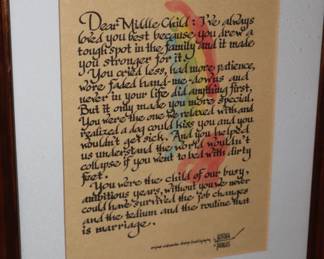 Dear Middle Child: I've always
loved you best because you drew a
tough spot in the family and it made
you stronger for it.
You cried less, had more patience,
wore faded hand-me-downs and
never in your life did anything first,
But it only made you more special.
You were the one we relaxed with and
realized a dog could kiss you and you
wouldn't get sick. And you helped
us understand the world wouldn't
collapse if you went to bed with dirty
feet.
You were the child of our busy,
ambitious years, without you we never
could have survived the job changes
and the tedium and the routine that
is marriage.